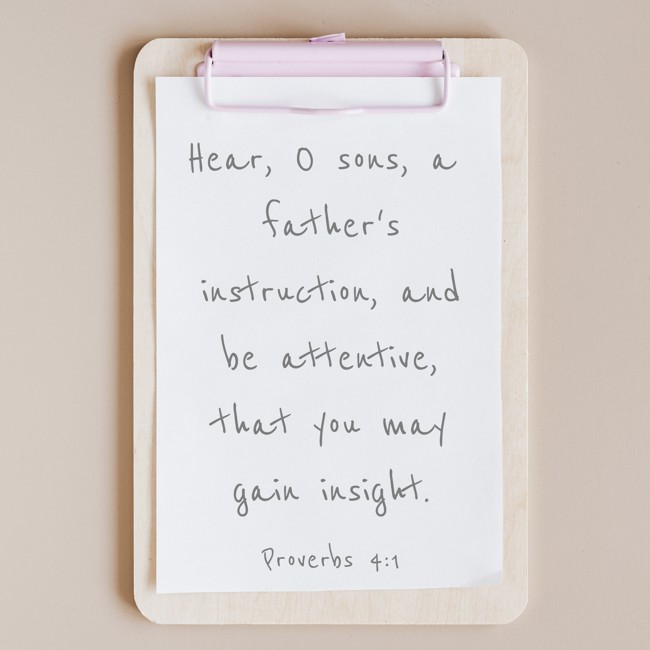 Hear, O sons, a
father's
instruction, and
be attentive,
that you may
gain insight.
Proverbs 4:1